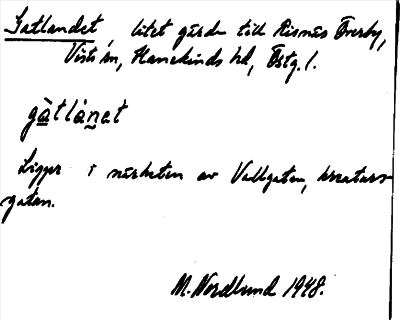 Gatlandet, litet gärde till Risnäs Överby,
Vists sn, Hanekinds hd, Östg. l.
gàtlánet
Ligger i närheten av Vallgatan, kreaturs-
gatan.
M. Nordlund 1948.